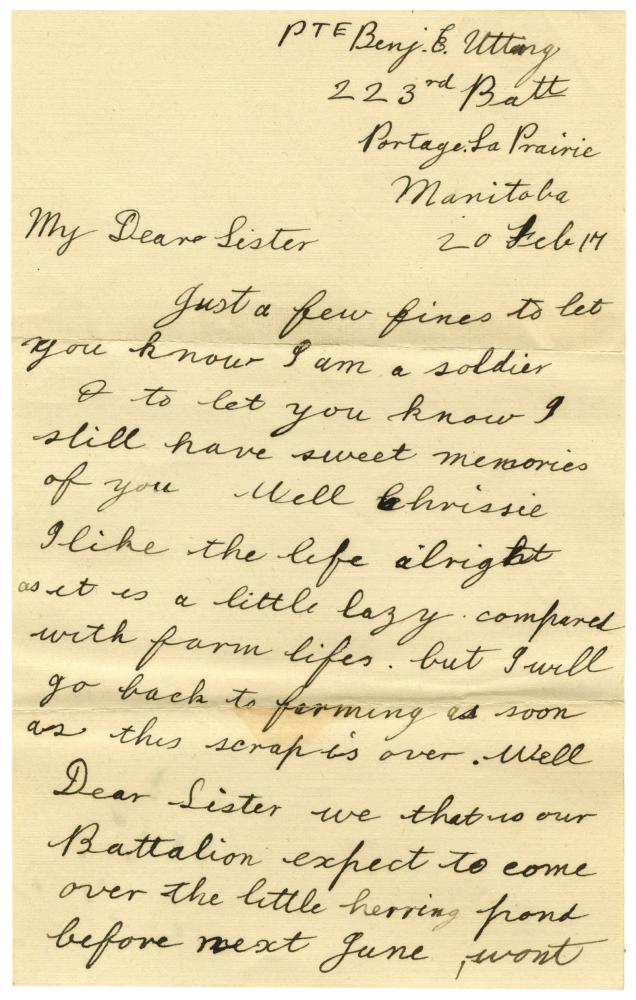 PTE Benj. E. Uttery
223rd Batt
Portage. La Prairie
Manitoba
My Dear Sister 20 Feb 17
Just a few lines to let
you know I am a soldier
& to let you know I
still have sweet memories
of you Well Chrissie
I like the life alright
as it is a little lazy compared
with farm lifes. but I will
go back to farming as soon
as this scrap is over. Well
Dear Sister we that is our
Battalion expect to come
over the little herring pond
before next June, wont